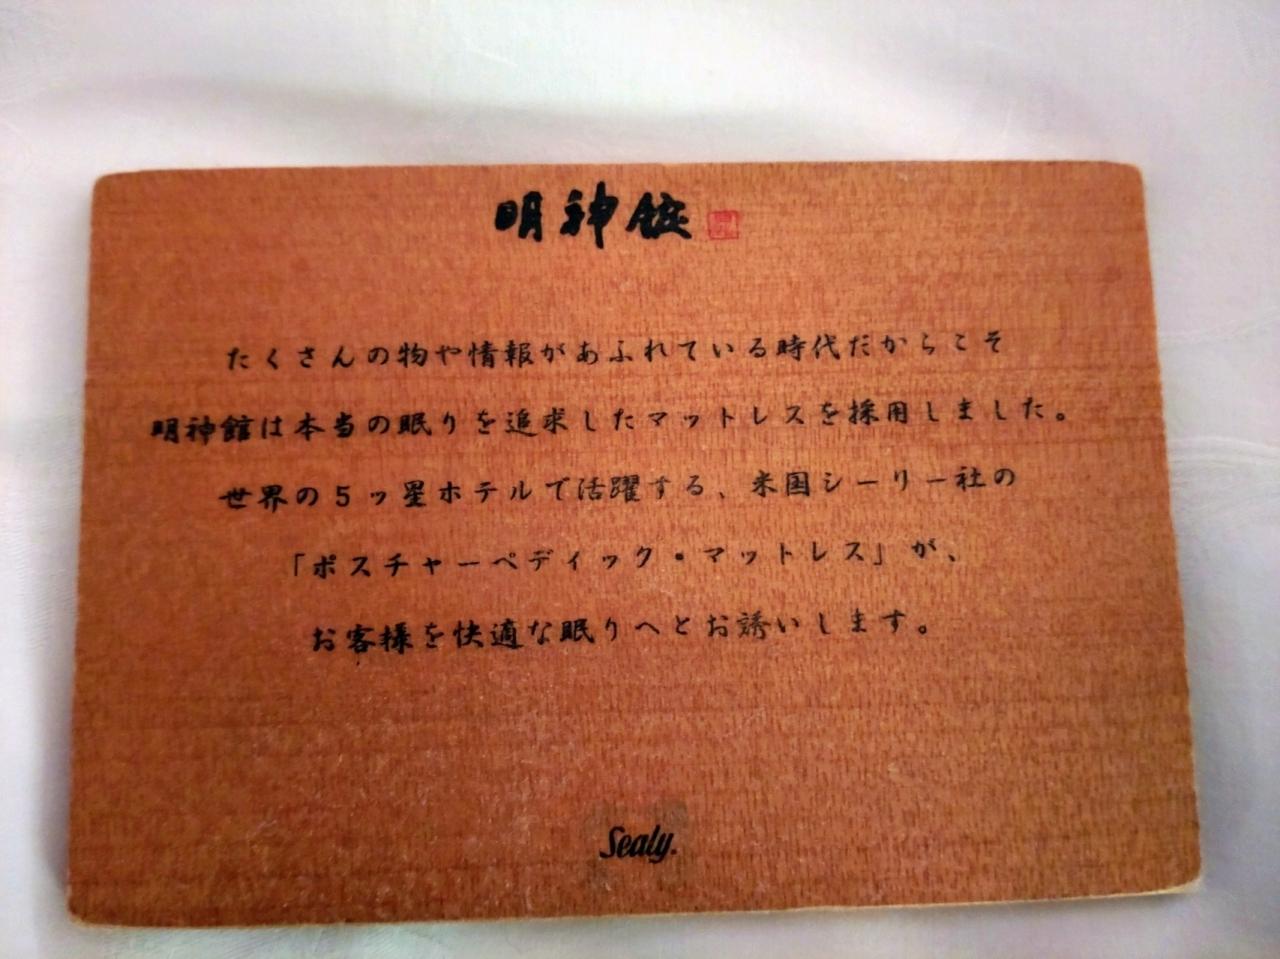 明神館
たくさんの物や情報があふれている時代だからこそ
明神館は本当の眠りを追求したマットレスを採用しました。
世界の5ッ星ホテルで活躍する、米国シーリー社の
「ポスチャーペディイック・マットレス」が、
お客様を快適な眠りへとお誘いします。
Sealy.